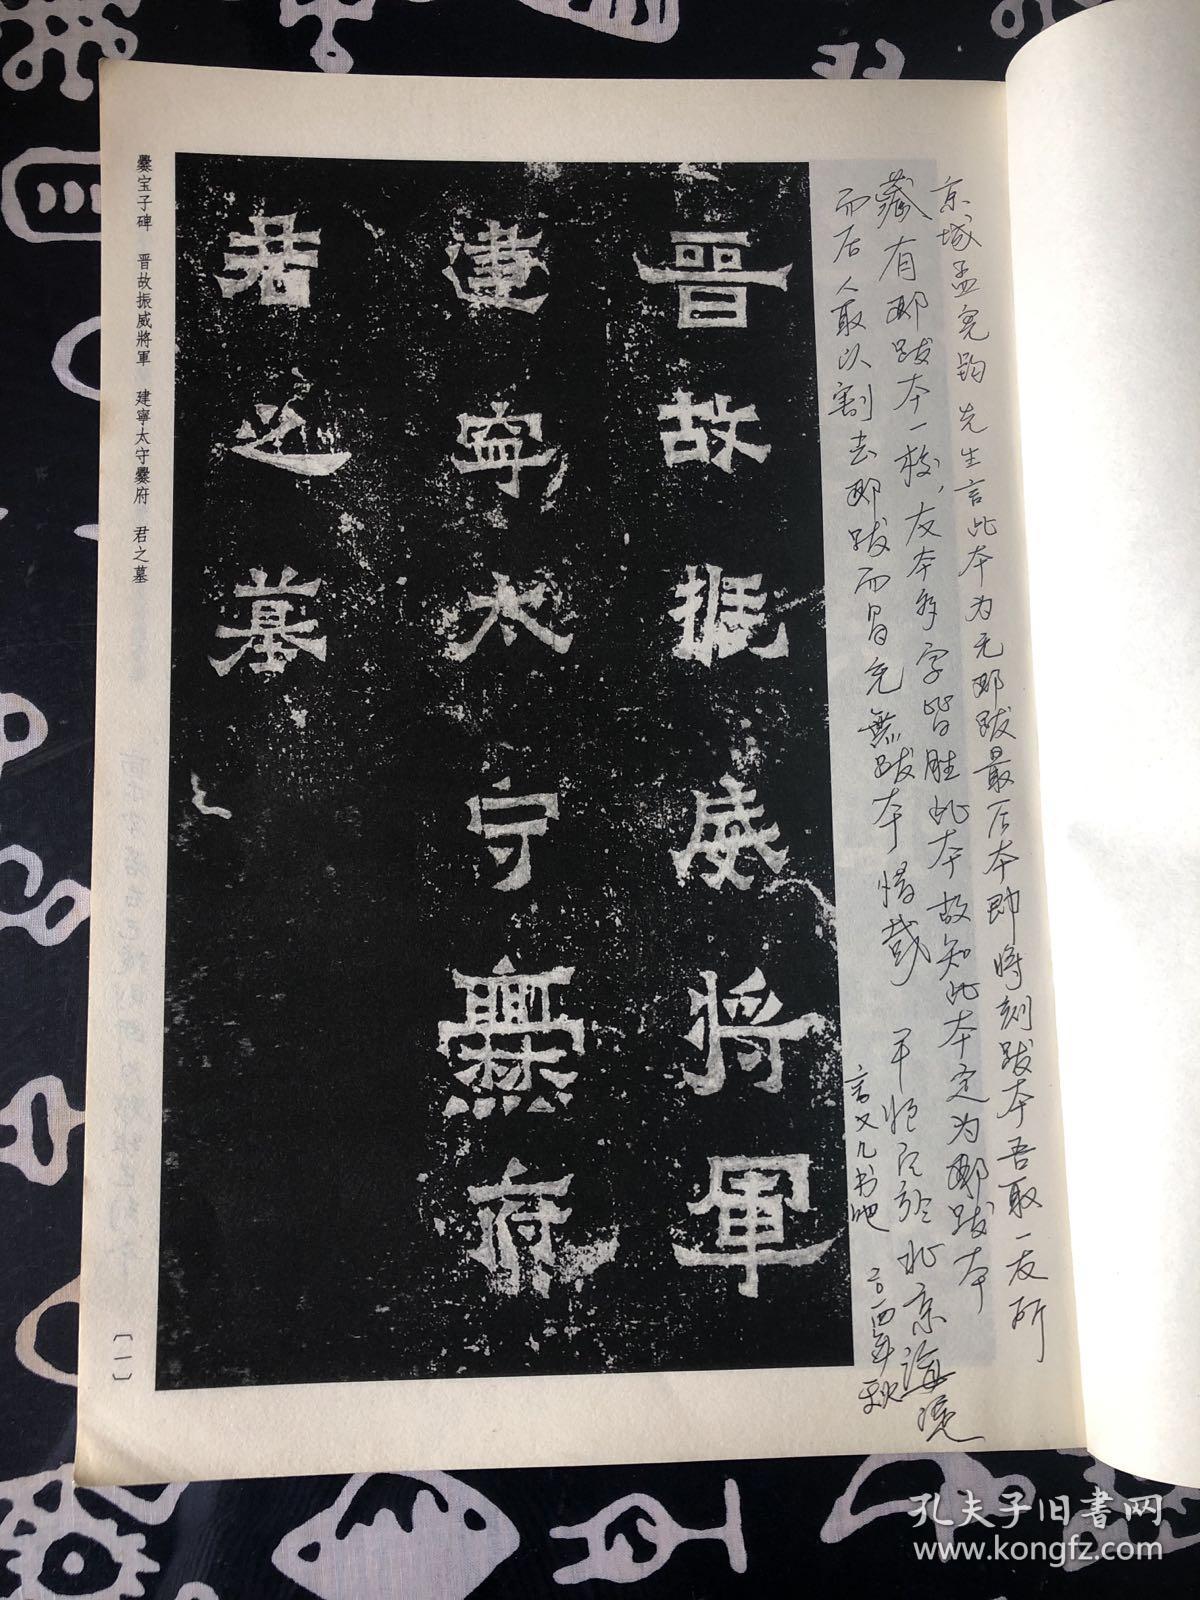 京城孟宪钧先生言此本为无邓跋最后本即将刻跋本吾取一友所
藏有邓跋本一校，友本多字皆胜此本故知此本定为邓跋本
而后人取以割去邓跋而冒充無跋本惜哉
於北京海
几书吧
年秋
晋故振威将軍
建寧太守爨府
君之墓
爨宝子碑 晋故振威將軍 建寧太守爨府 君之墓
〔一〕
孔夫子旧書网
www.kongfz.com